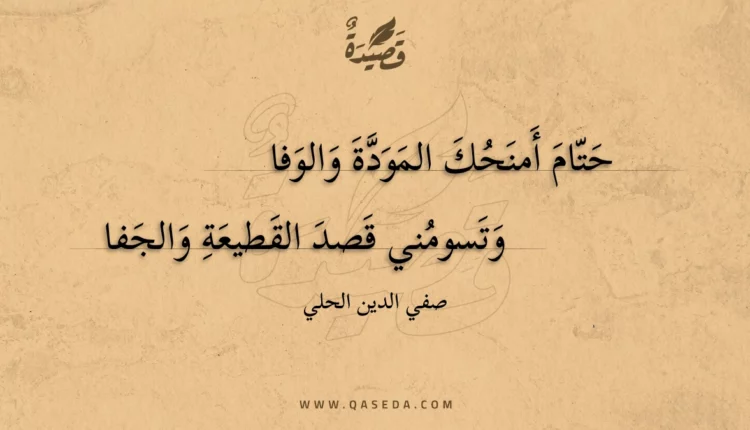 قَصِيْدَةٌ
حَتّامَ أَمنَحُكَ المَوَدَّةَ وَالوَفا
وَتَسومُني قَصدَ القَطيعَةِ وَالجَفا
صفي الدين الحلي
WWW.QASEDA.COM